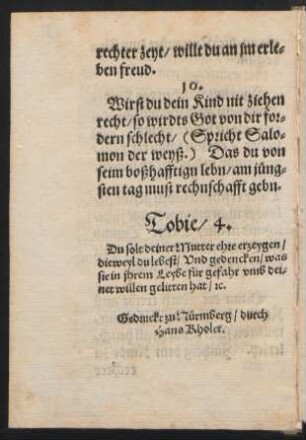 rechter zeyt/ wille du an jm erle-
ben freud.
10.
Wirst du dein Kind nit ziehen
recht/ so wirdts Got von dir for-
dern schlecht/ (Spricht Salo-
mon der weyß.) Das du von
seim boßhafftign lebn/ am jüng-
sten tag must rechnschafft gebn.
Tobie/ 4.
Du solt deiner Mutter ehre erzeygen/
dieweyl du lebest/ Und gedencken/ was
sie in jhrem Leybe für gefahr umb dei-
net willen gelitten hat/ ꝛc.
Gedruckt zu Nürmberg/ durch
Hans Kholer.